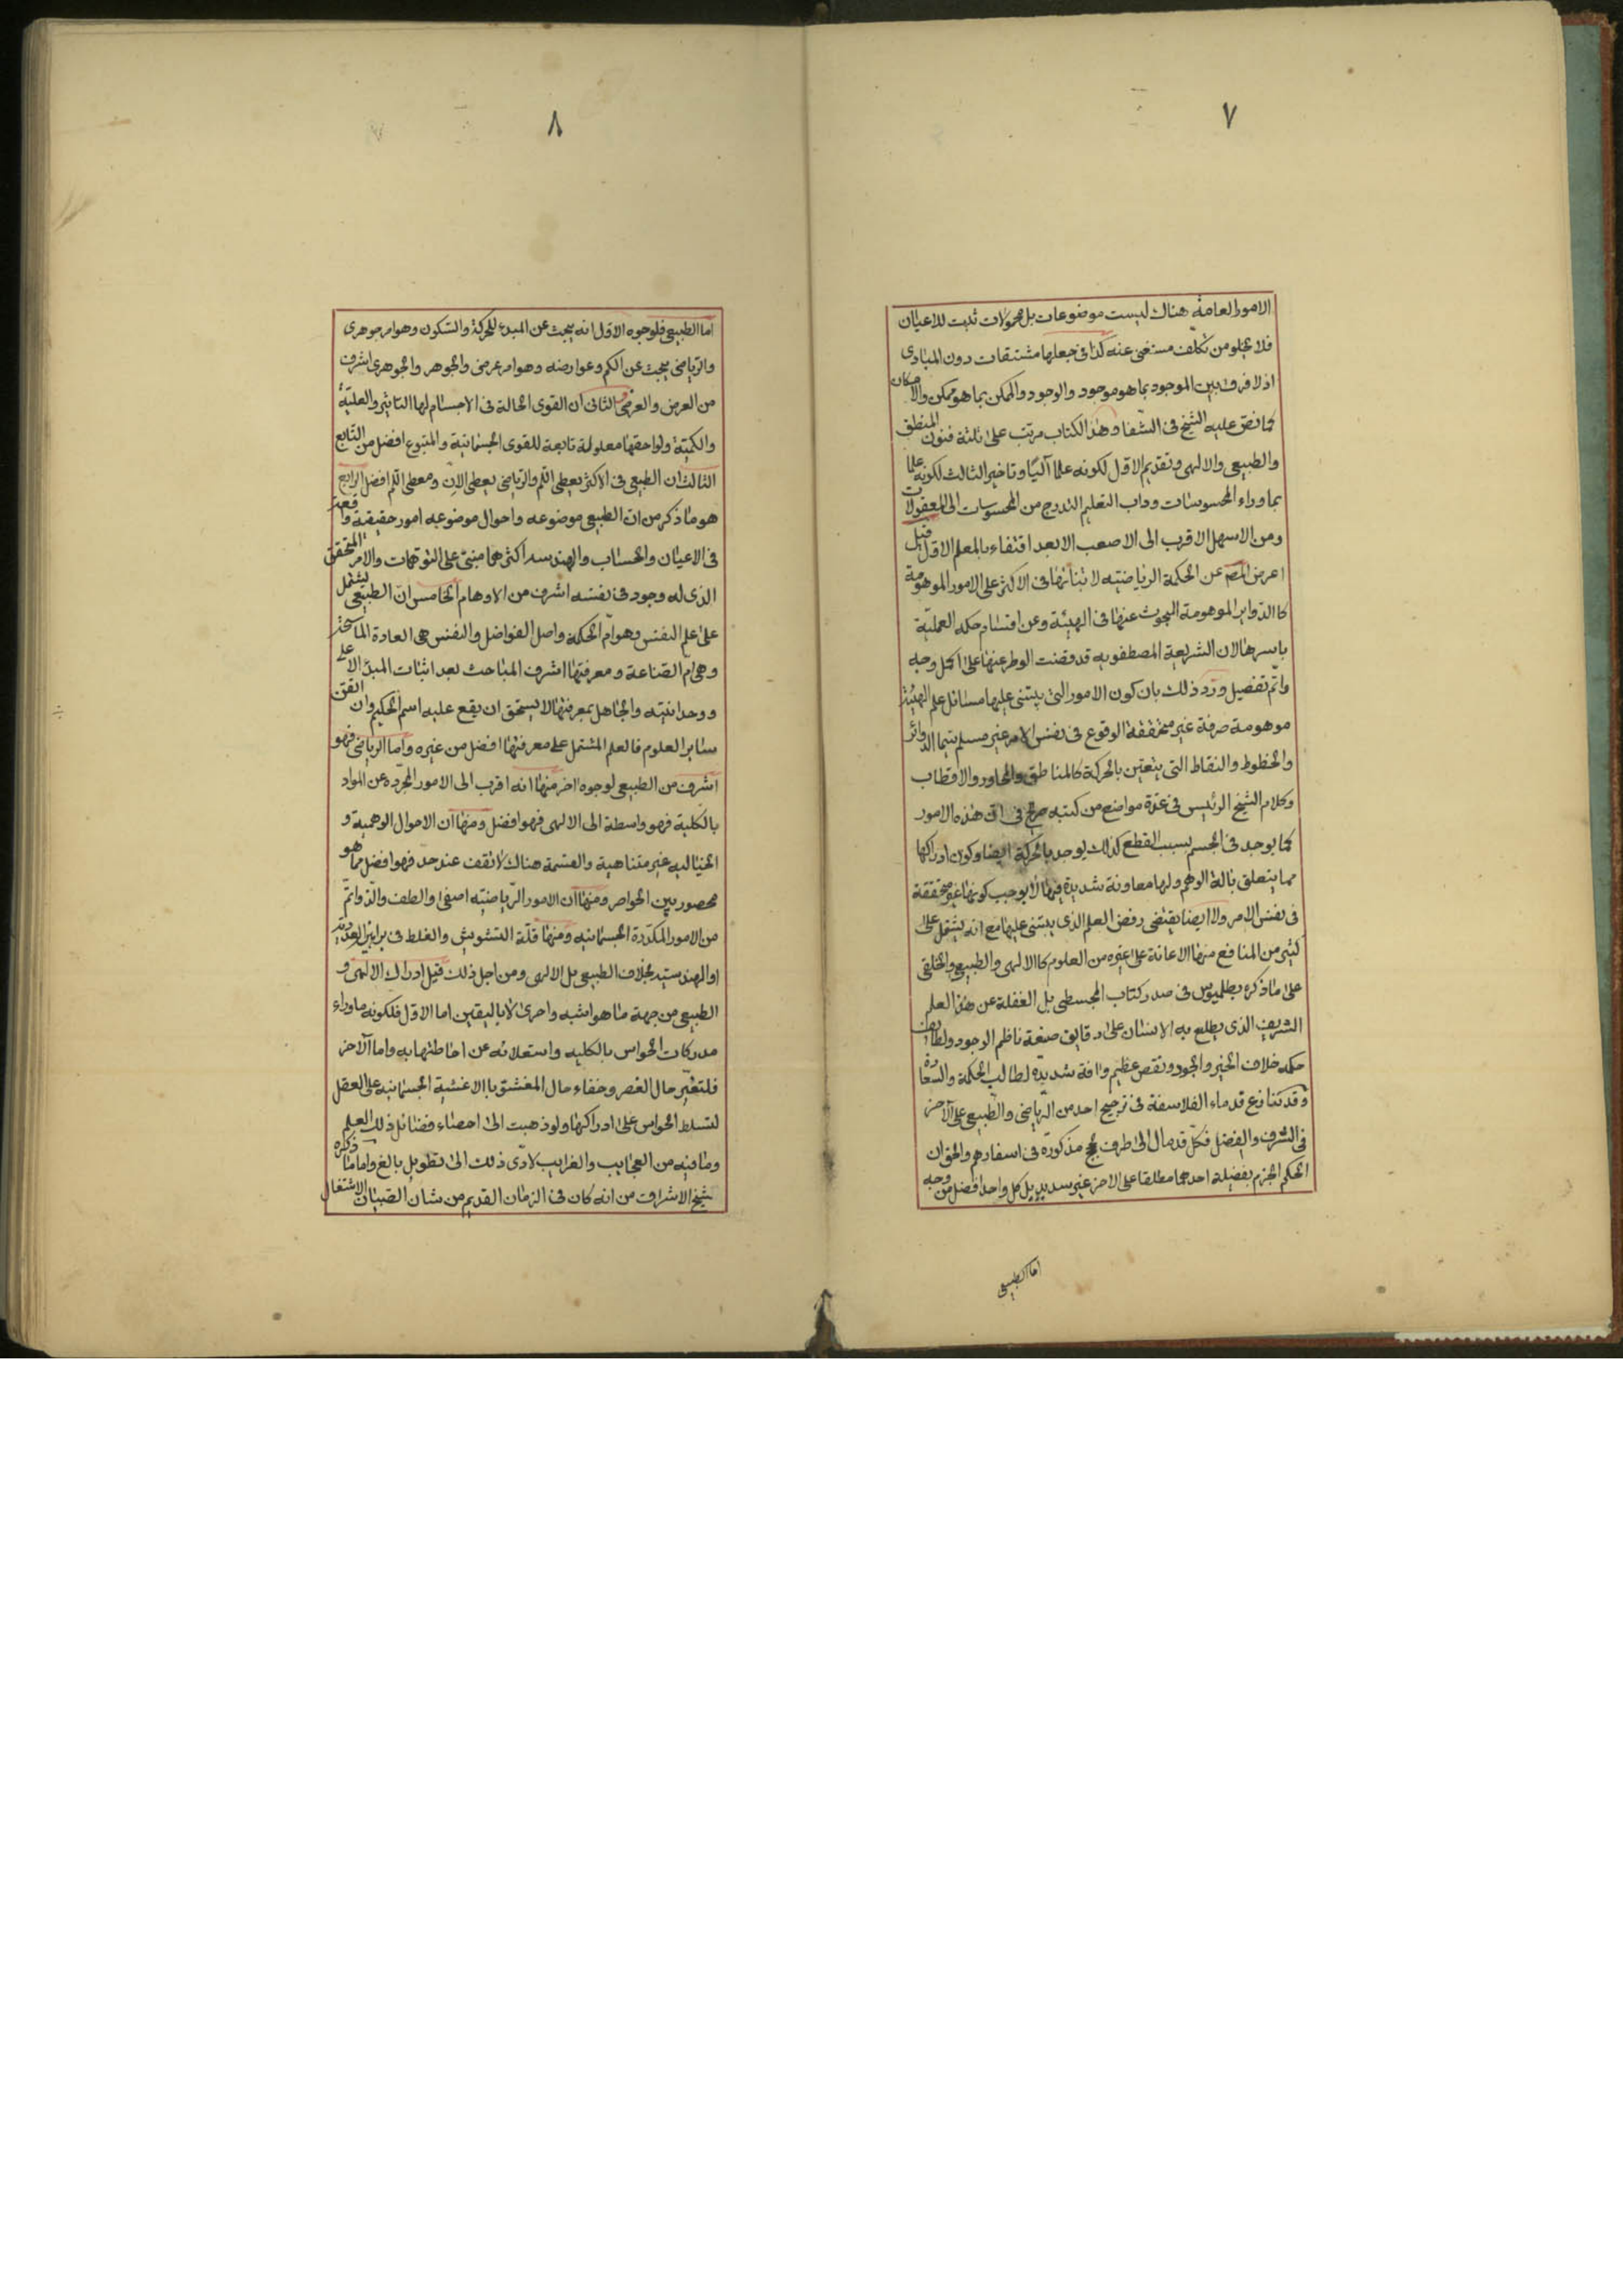 ٧
الامور العامة هناك ليست موضوعات بل محمولات تثبت للاعيان
فلا يخلو من تكلف مستغنى عنه كذا فى جعلها مشتقات دون المبادى
اذ لا فرق بين الموجود بما هو موجود والوجود والممكن بما هو ممكن والامكان
كما نص عليه الشيخ فى الشفا وهذا الكتاب مرتب على ثلثة فنون المنطق
والطبيعى والالهى وتقديم الاول لكونه علما آليا وتاخير الثالث لكونه علما
بما وراء المحسوسات وداب التعليم التدرج من المحسوسات الى المعقولات
ومن الاسهل الاقرب الى الاصعب الابعد اقتفاء بالمعلم الاول قيل
اعرض المصـ عن الحكمة الرياضيه لابتنائها فى الاكثر على الامور الموهومة
كالدواير الموهومة المبحوث عنها فى الهيئة وعن اقسام حكمه العملية
باسرها لان الشريعة المصطفويه قد قضت الوطر عنها على اكمل وجه
واتم تفصيل ورد ذلك بان كون الامور التى يبتنى عليها مسائل علم الهيئة
موهومة صرفة غير متحققة الوقوع فى نفس الامر غير مسلم سيما الدوائر
والخطوط والنقاط التى يتعين بالحركة كالمناطق والمحاور والاقطاب
وكلام الشيخ الرئيس فى عدة مواضع من كتبه صريح فى ان هذه الامور
كما يوجد فى الجسم بسبب القطع كذلك يوجد بالحركة ايضا وكون ادراكها
مما يتعلق بالة الوهم ولها معاونة شديدة فيها لا يوجب كونها غير متحققة
فى نفس الامر ولا ايضا يقتضى رفض العلم الذى يبتنى عليها مع انه يشتمل على
كثير من المنافع منها الاعانة على غيره من العلوم كالالهى والطبيعى والخلقى
على ما ذكره بطلميوس فى صدر كتاب المجسطى بل الغفلة عن هذا العلم
الشريف الذى يطلع به الانسان على دقايق صنعة ناظم الوجود ولطايف
حكمه خلاف الخير والجود ونقص عظيم وافة شديده لطالب الحكمة والسعادة
وقد تنازع قدماء الفلاسفة فى ترجيح احد من الرياضى والطبيعى على الآخر
فى الشرف والفضل فكل قد مال الى طرف بحجج مذكورة فى اسفارهم والحق ان
الحكم الجزم بفضيلة احدهما مطلقا على الاخر غير سديد بل كل واحد افضل من وجه
اما الطبيعى
٨
اما الطبيعى فلوجوه الاول انه يبحث عن المبدء للحركة والسكون وهو امر جوهرى
والرياضى يبحث عن الكم وعوارضه وهو امر عرضى والجوهر والجوهرى اشرف
من العرض والعرضى الثانى ان القوى الحالة فى الاجسام لها التاثير والعلية
والكمية ولواحقها معلولة تابعة للقوى الجسمانية والمتبوع افضل من التابع
الثالث ان الطبيعى فى الاكثر يعطى اللم والرياضى يعطى الان ومعطى اللم افضل الرابع
هو ما ذكر من ان الطبيعى موضوعه واحوال موضوعه امور حقيقية واقعة
فى الاعيان والحساب والهندسه اكثرهما مبنى على التوهمات والامر المتحقق
الذى له وجود فى نفسه اشرف من الاوهام الخامس ان الطبيعى يشتمل
على علم النفس وهو ام الحكمة واصل الفواضل والنفس هى العادة الماسحة
وهى ام الصناعة ومعرفتها اشرف المباحث بعد اثبات المبدأ الاعلى
ووحدانيته والجاهل بمعرفتها لا يستحق ان يقع عليه اسم الحكيم وان اتقن
ساير العلوم فالعلم المشتمل على معرفتها افضل من غيره واما الرياضى فهو
اشرف من الطبيعى لوجوه اخر منها انه اقرب الى الامور المجرده عن المواد
بالكلية فهو واسطة الى الالهى فهو افضل ومنها ان الاحوال الوهمية و
الخياليه غير متناهية والقسمة هناك لا تقف عند حد فهو افضل مما هو
محصور بين الحواصر ومنها ان الامور الرياضيه اصفى والطف والذ واتم
من الامور المكدرة الجسمانيه ومنها قلة التشويش والغلط فى براهين العددية
او الهندسيه بخلاف الطبيعى بل الالهى ومن اجل ذلك قيل ادراك الالهى و
الطبيعى من جهة ما هو اشبه واحرى لا باليقين اما الاول فلكونه ما وراء
مدركات الحواس بالكليه واستعلائه عن احاطتها به واما الآخر
فلتغير حال العنصر وخفاء حال المغشوة بالاغشية الجسمانيه على العقل
لتسلط الحواس على ادراكها ولو ذهبت الى احصاء فضائل ذلك العلم
وما فيه من العجايب والغرايب لادى ذلك الى تطويل بالغ واما ما ذكره
شيخ الاشراق من انه كان فى الزمان القديم من شان الصبيان الاشتغال